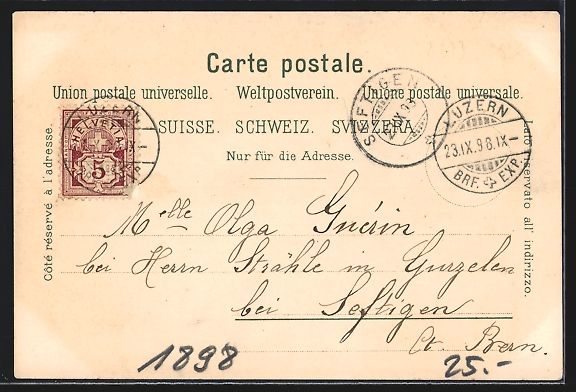 Carte postale.
Union postale universelle. Weltpostverein. Unione postale universale.
SUISSE. SCHWEIZ. SVIZZERA.
Nur für die Adresse.
Côté réservé à l'adresse.
Lato riservato all' indirizzo.
HELVETIA
5
LUZERN
SEFTIGEN
IX.98
LUZERN
23.IX.98.IX–
BRF. EXP.
Melle Olga Guérin
bei Herrn Strähle in Gurzelen
bei Seftigen
Ct. Bern.
1898
25.-